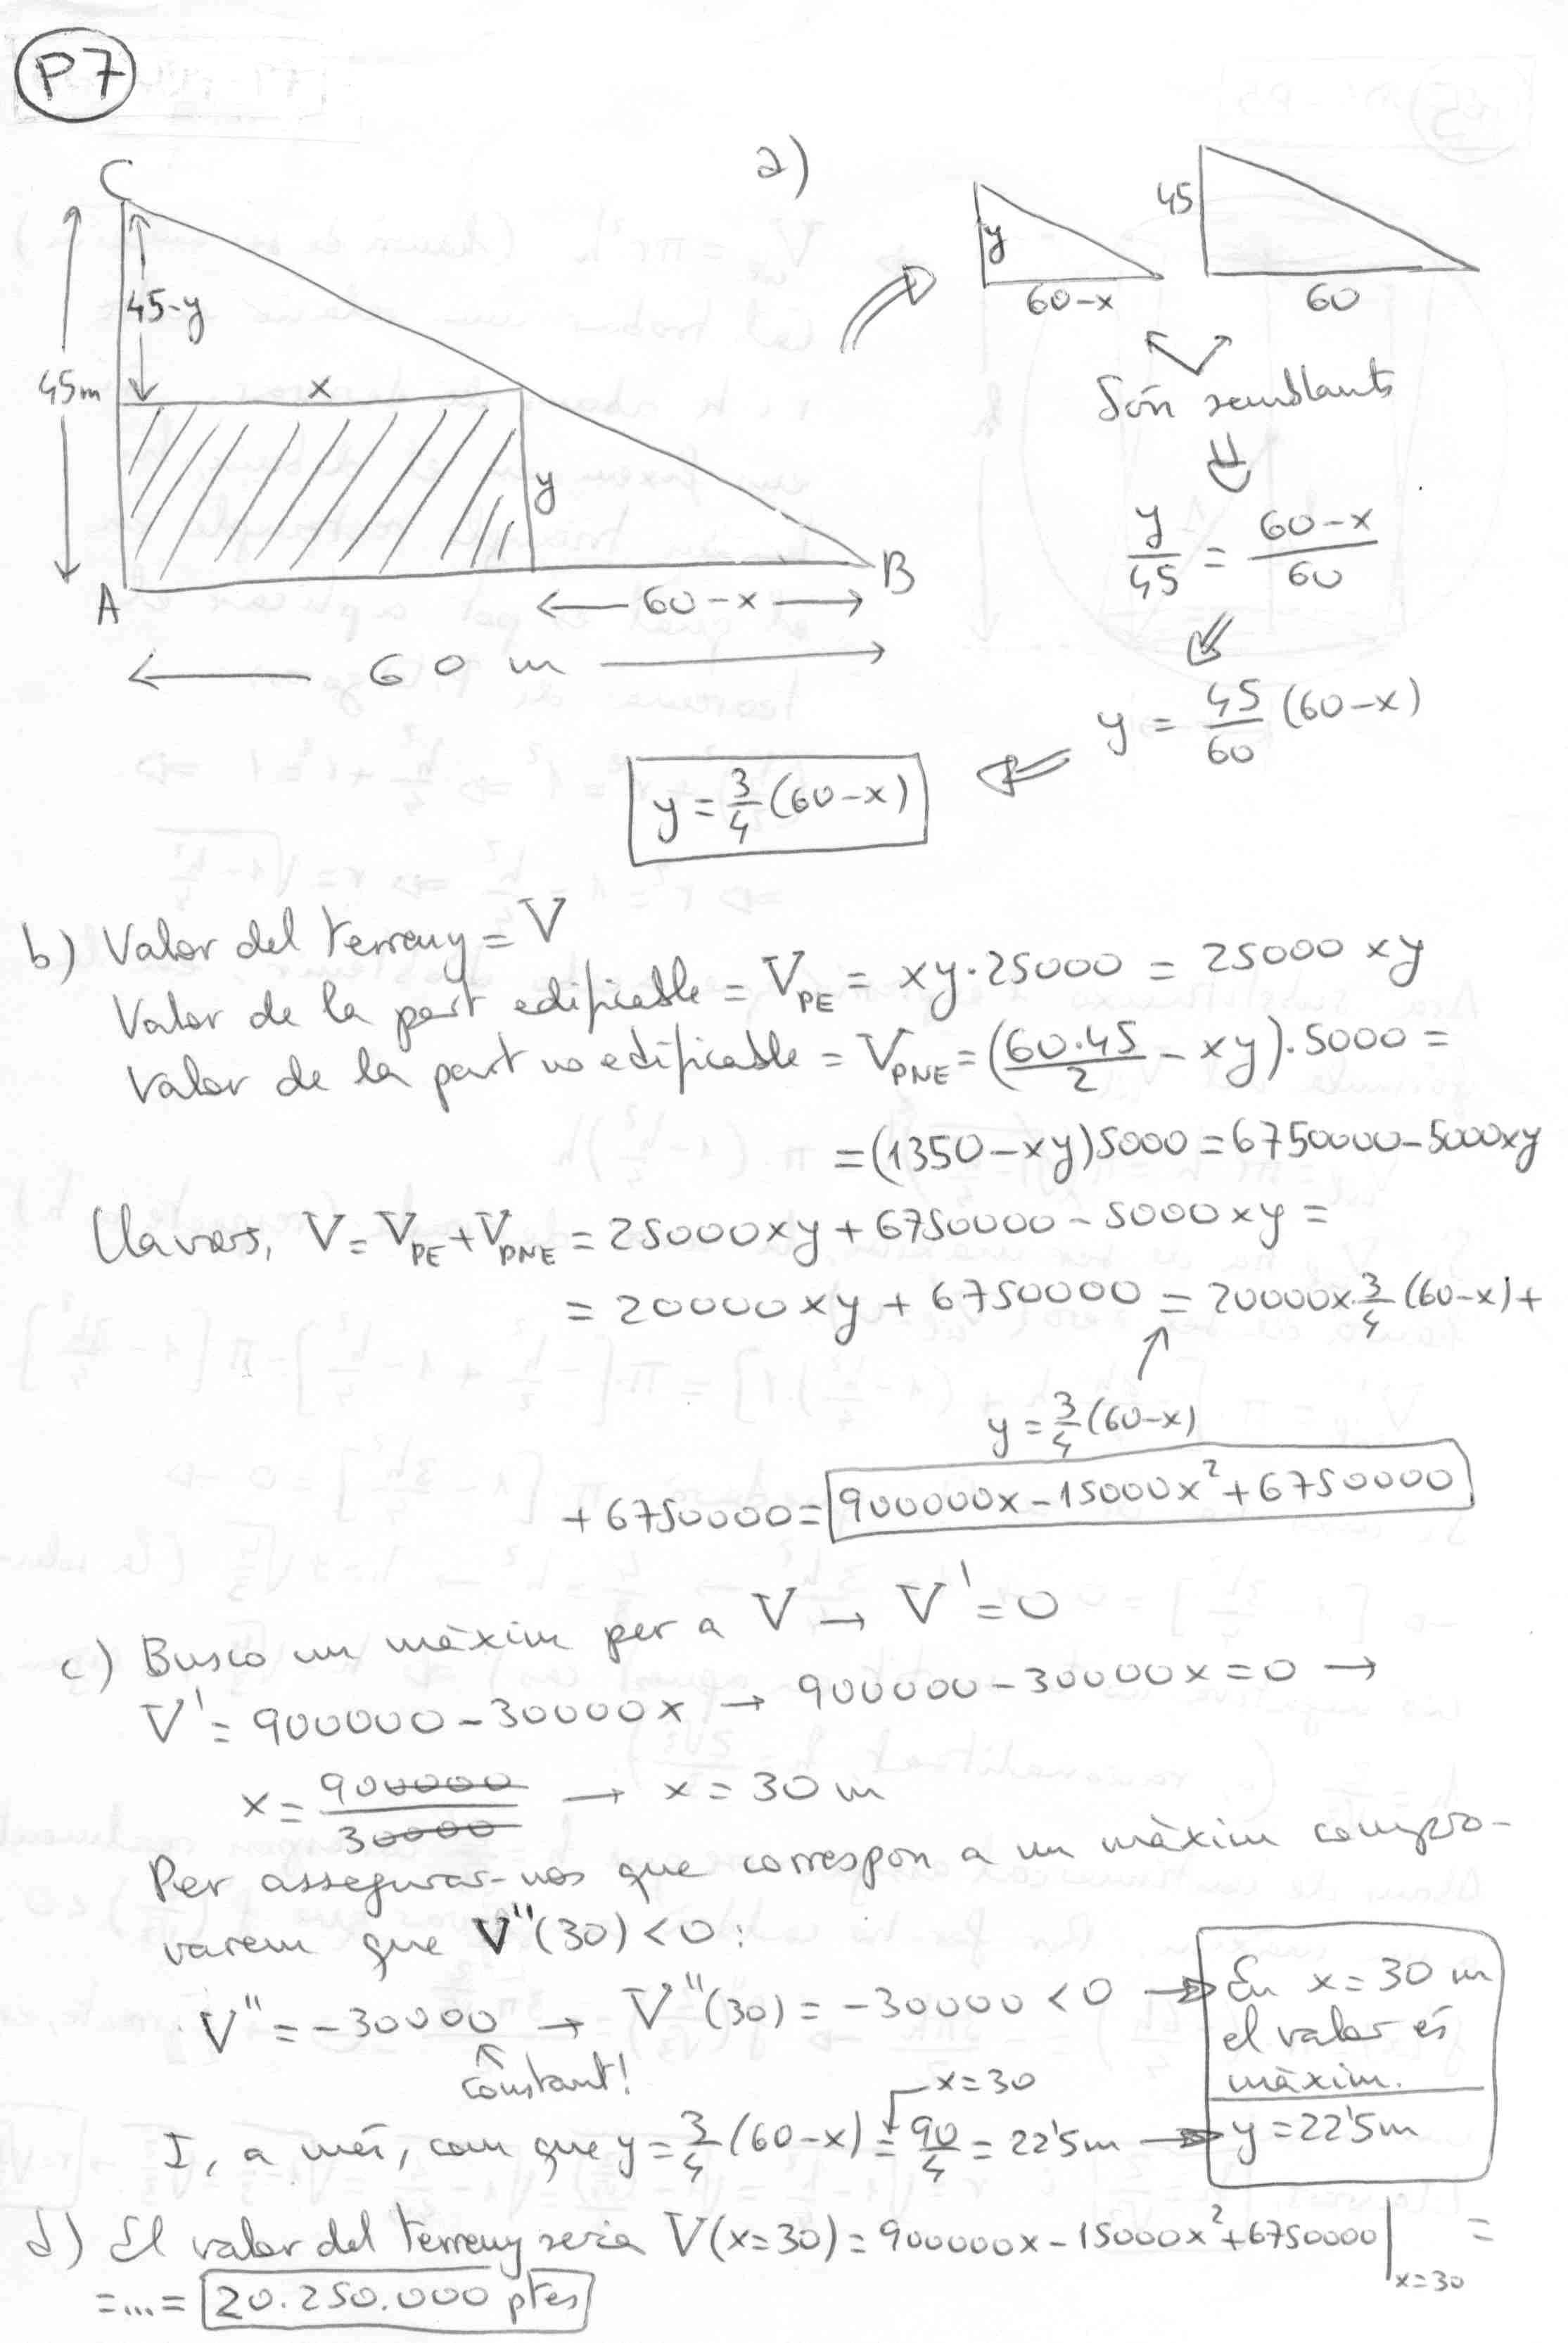 P7
C
a)
45-y
45m
x
y
A
60-x
B
60 m
y
60-x
45
60
Són semblants
y/45 = (60-x)/60
y = 45/60 (60-x)
y = 3/4 (60-x)
b) Valor del terreny = V
Valor de la part edificable = V_PE = xy·25000 = 25000 xy
Valor de la part no edificable = V_PNE = (60·45/2 - xy)·5000 =
= (1350-xy)5000 = 6750000-5000xy
Llavors, V = V_PE + V_PNE = 25000xy + 6750000 - 5000xy =
= 20000xy + 6750000 = 20000x·3/4 (60-x)+
y = 3/4 (60-x)
+ 6750000 = 900000x - 15000x² + 6750000
c) Busco un màxim per a V → V' = 0
V' = 900000 - 30000x → 900000 - 30000x = 0 →
x = 900000/30000 → x = 30 m
Per assegurar-nos que correspon a un màxim compro-
varem que V''(30) < 0:
V'' = -30000 → V''(30) = -30000 < 0 → En x = 30 m
el valor és
màxim.
constant!
x=30
I, a més, com que y = 3/4 (60-x) = 90/4 = 22'5m → y = 22'5m
d) El valor del terreny seria V(x=30) = 900000x - 15000x² + 6750000 |x=30 =
=...= 20.250.000 ptes